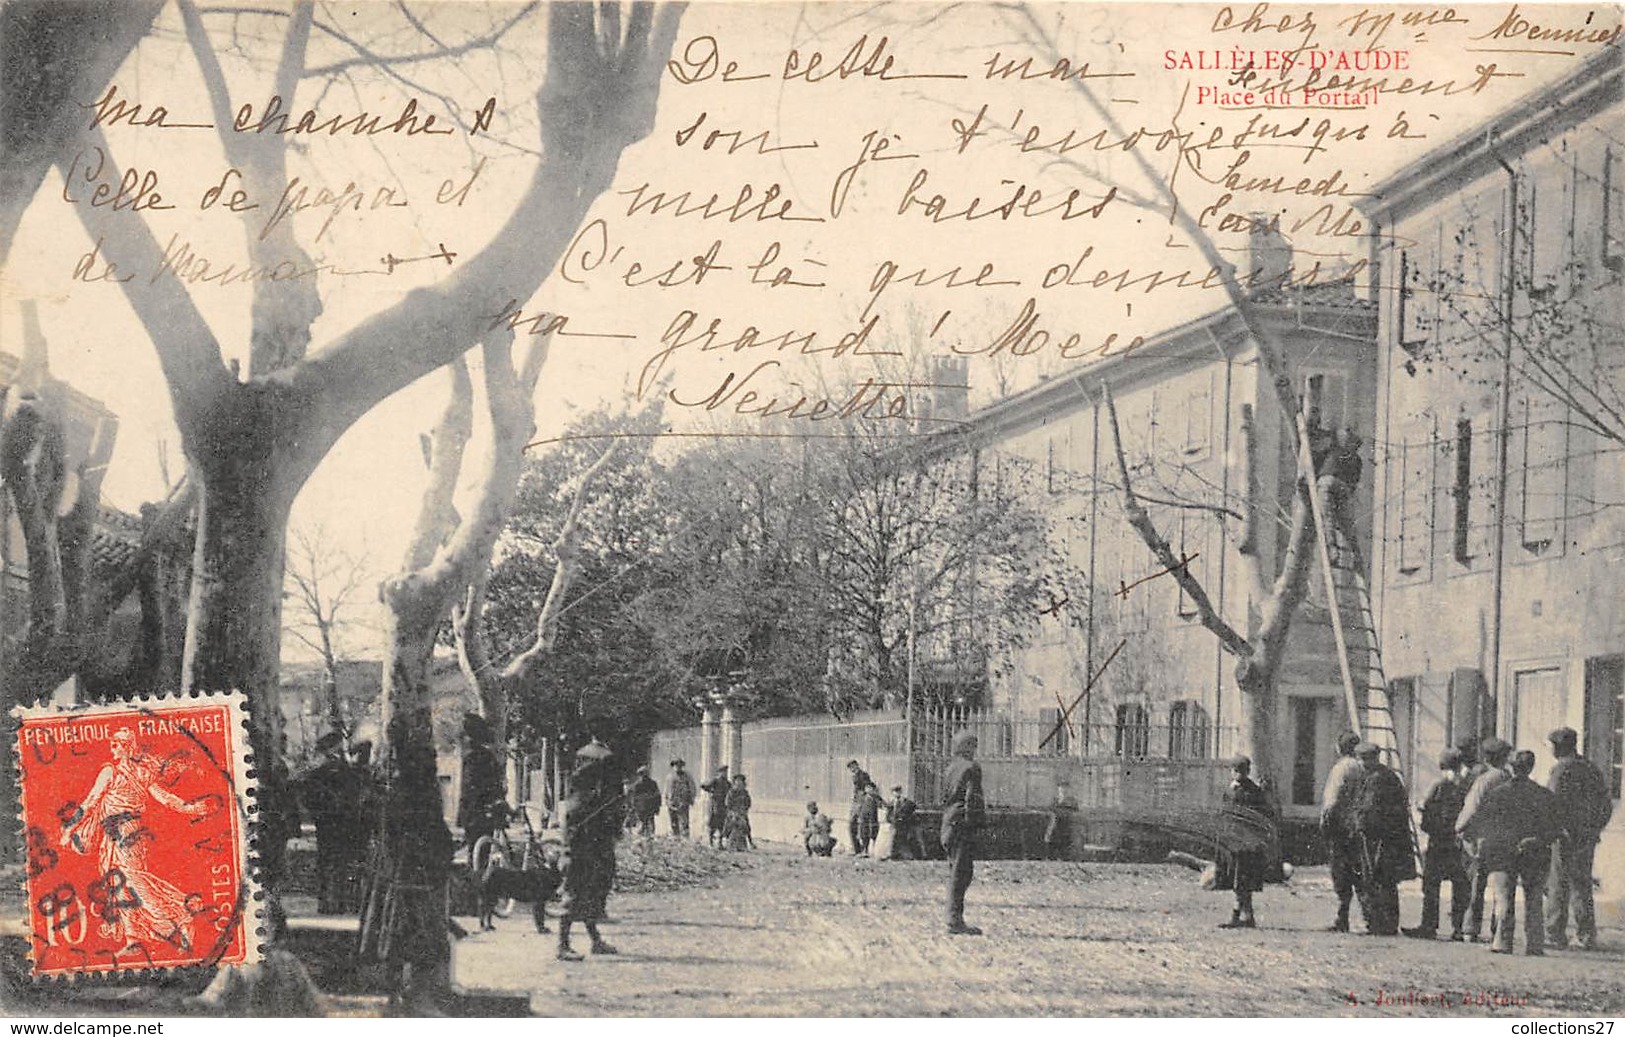 ma chambre
Celle de papa et
de Maman
De cette mai
son je t'envoie
mille baisers.
C'est là que demeure
ma grand' Mère
chez Mme
Seulement
jusqu'à
Samedi
SALLÈLES-D'AUDE
Place du Portail
REPUBLIQUE FRANÇAISE
POSTES
10c
A. Joullera, éditeur
collections27